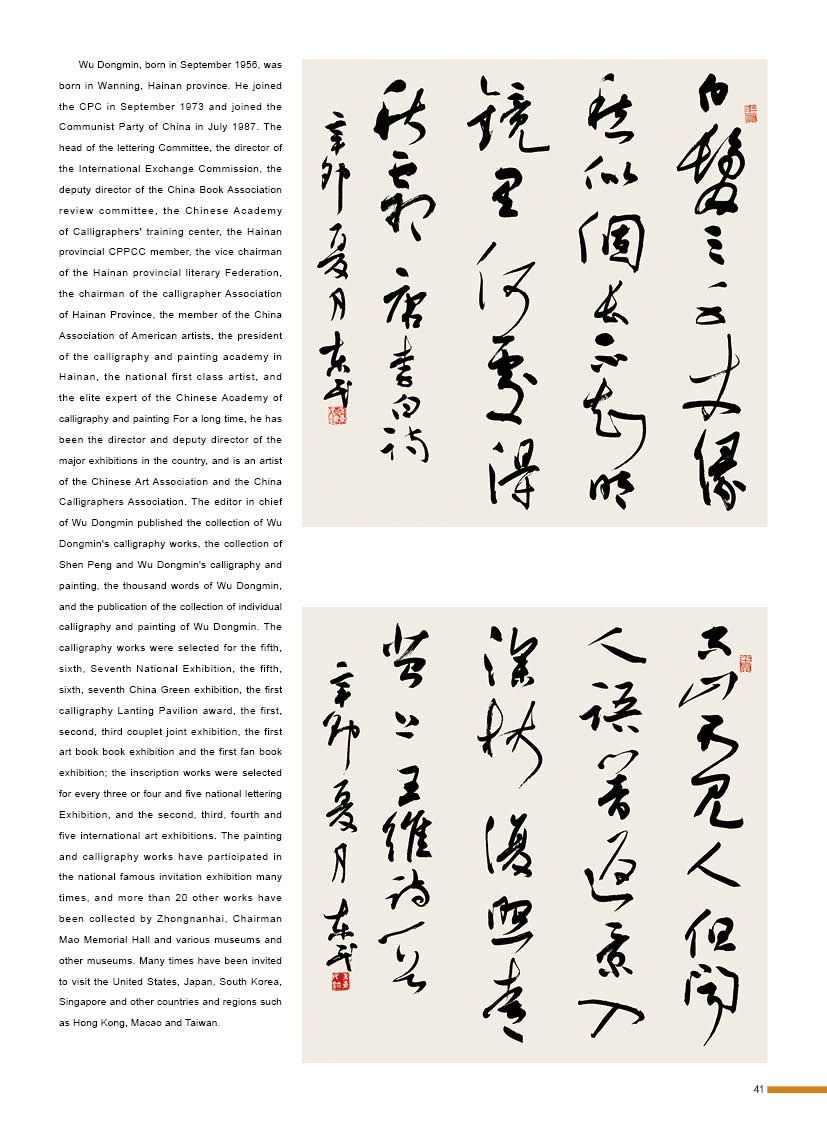 Wu Dongmin, born in September 1956, was
born in Wanning, Hainan province. He joined
the CPC in September 1973 and joined the
Communist Party of China in July 1987. The
head of the lettering Committee, the director of
the International Exchange Commission, the
deputy director of the China Book Association
review committee, the Chinese Academy
of Calligraphers' training center, the Hainan
provincial CPPCC member, the vice chairman
of the Hainan provincial literary Federation,
the chairman of the calligrapher Association
of Hainan Province, the member of the China
Association of American artists, the president
of the calligraphy and painting academy in
Hainan, the national first class artist, and
the elite expert of the Chinese Academy of
calligraphy and painting For a long time, he has
been the director and deputy director of the
major exhibitions in the country, and is an artist
of the Chinese Art Association and the China
Calligraphers Association. The editor in chief
of Wu Dongmin published the collection of Wu
Dongmin's calligraphy works, the collection of
Shen Peng and Wu Dongmin's calligraphy and
painting, the thousand words of Wu Dongmin,
and the publication of the collection of individual
calligraphy and painting of Wu Dongmin. The
calligraphy works were selected for the fifth,
sixth, Seventh National Exhibition, the fifth,
sixth, seventh China Green exhibition, the first
calligraphy Lanting Pavilion award, the first,
second, third couplet joint exhibition, the first
art book book exhibition and the first fan book
exhibition; the inscription works were selected
for every three or four and five national lettering
Exhibition, and the second, third, fourth and
five international art exhibitions. The painting
and calligraphy works have participated in
the national famous invitation exhibition many
times, and more than 20 other works have
been collected by Zhongnanhai, Chairman
Mao Memorial Hall and various museums and
other museums. Many times have been invited
to visit the United States, Japan, South Korea,
Singapore and other countries and regions such
as Hong Kong, Macao and Taiwan.
白髮三千丈緣
愁似個長不知明
鏡里何處得
秋霜唐李白詩
辛卯夏月東民
空山不見人但聞
人語響返景入
深林復照青
苔上王維詩一首
辛卯夏月東民
41